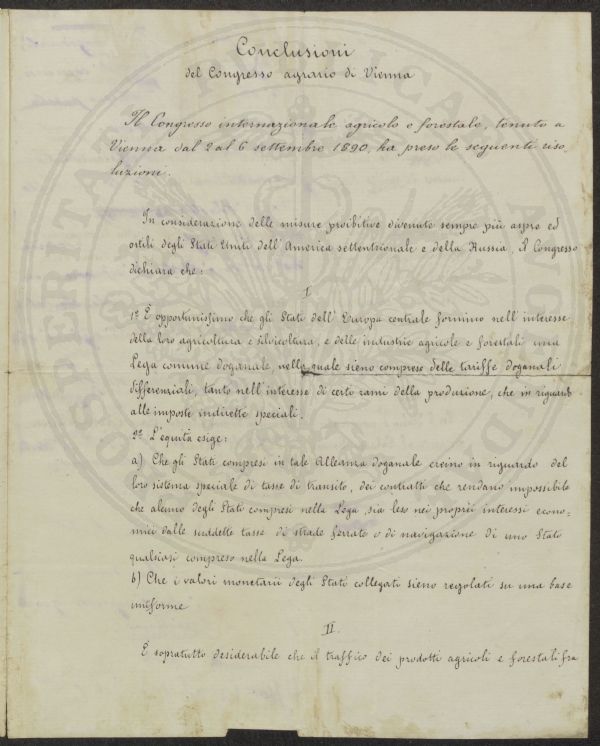 Conclusioni
del Congresso agrario di Vienna
Il Congresso internazionale agricolo e forestale, tenuto a
Vienna dal 2 al 6 settembre 1890, ha preso le seguenti riso-
luzioni.
In considerazione delle misure proibitive divenute sempre più aspre ed
ostili degli Stati Uniti dell'America settentrionale e della Russia, il Congresso
dichiara che:
I
1º È opportunissimo che gli Stati dell'Europa centrale formino nell'interesse
della loro agricoltura e silvicoltura, e delle industrie agricole e forestali una
Lega comune doganale, nella quale sieno comprese delle tariffe doganali
differenziali, tanto nell'interesse di certi rami della produzione, che in riguardo
alle imposte indirette speciali.
2º L'equità esige:
a) Che gli Stati compresi in tale Alleanza doganale creino in riguardo del
loro sistema speciale di tasse di transito, dei contratti che rendano impossibile
che alcuno degli Stati compresi nella Lega, sia leso nei proprii interessi econo-
mici dalle suddette tasse di strade ferrate o di navigazione di uno Stato
qualsiasi compreso nella Lega.
b) Che i valori monetarii degli Stati collegati sieno regolati su una base
uniforme
II.
È sopratutto desiderabile che il traffico dei prodotti agricoli e forestali fra